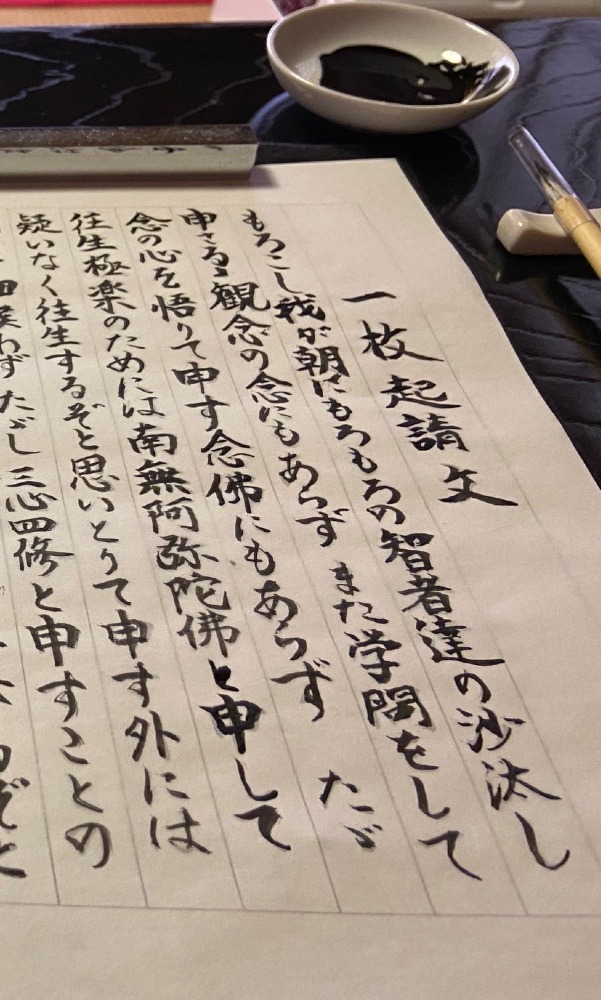 一枚起請文
もろこし我が朝にもろもろの智者達の沙汰し
申さるゝ観念の念にもあらず また学問をして
念の心を悟りて申す念佛にもあらず たゞ
往生極楽のためには南無阿弥陀佛と申して
疑いなく往生するぞと思いとりて申す外には
候わず たゞし三心四修と申すことの
ぞと